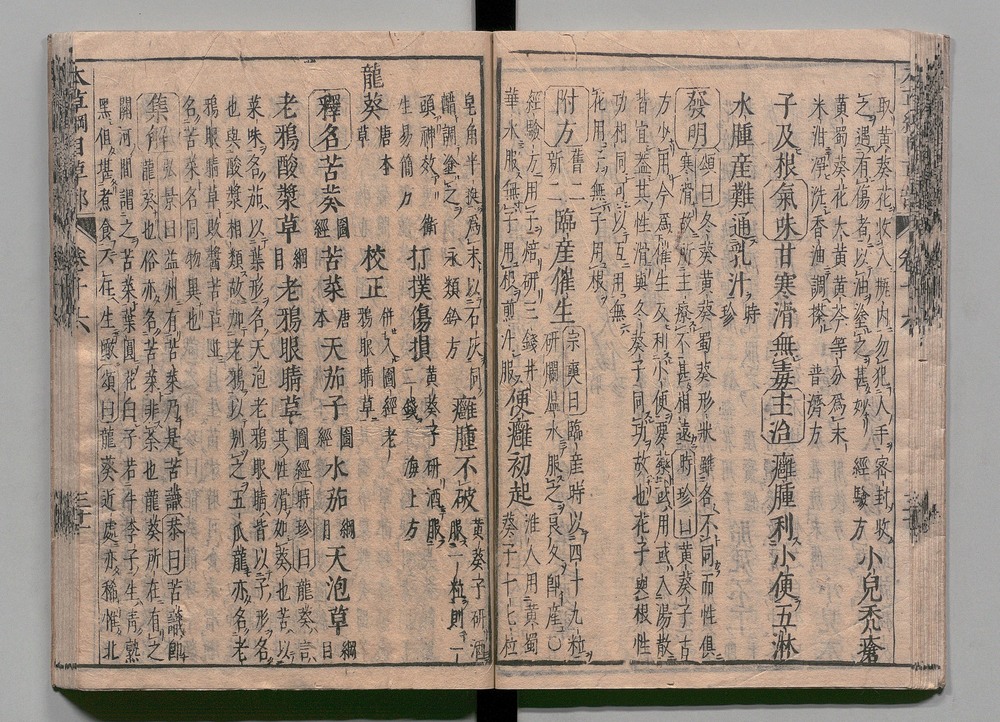 取黃葵花收入瓶內勿犯人手密封收 小兒禿瘡
之遇有傷者以油塗之甚妙 經驗方
黃蜀葵花大黃黃芩等分為末
米泔淨洗香油調搽 普濟方
子及根氣味甘寒滑無毒主治癰腫利小便五淋
水腫産難通乳汁 時珍
發明 頌曰冬葵黃葵蜀葵形狀雖各不同而性俱
寒滑故所主療不甚相遠 時珍曰黃葵子古
方少用今為催生及利小便要藥或用或入湯散
皆宜蓋其性滑與冬葵子同功故也花子與根性
功相同可以互用無
花用子無子用根
附方 舊二新二 臨産催生 宗奭曰臨産時以四十九粒
研爛溫水服之良久卽産○
經驗方用子焙研三錢井
華水服無子用根煎汁服 便癰初起 淮人用黃蜀
葵子十七粒
皂角半挺為末以石灰同
醋調塗之 永類鈐方 癰腫不破 黃葵子研酒
服一粒則一
頭神效 衞
生易簡方 打撲傷損 黃葵子研酒服
二錢 海上方
龍葵 唐本草 校正 併入圖經老
鴉眼睛草
釋名 苦葵 圖經 苦菜 唐本 天茄子 圖經 水茄 綱目 天泡草 綱目
老鴉酸漿草 綱目 老鴉眼睛草 圖經 時珍曰龍葵言
其性滑如葵也苦以
菜味名茄以葉形名天泡老鴉眼睛皆以子形名
也與酸漿相類故加老鴉以別之五爪龍亦名老
鴉眼睛草敗醬苦苣
名苦菜名同物異也
集解 弘景曰益州有苦菜乃是苦識 恭曰苦識卽
龍葵也俗亦名苦菜非荼也龍葵所在有之
關河間謂之苦菜葉圓花白子若牛李子生青熟
黑但堪煮食不任生噉 頌曰龍葵近處亦稀惟北
本草綱目草部 卷十六